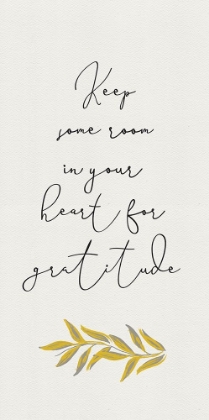 Keep
some room
in your
heart for
gratitude